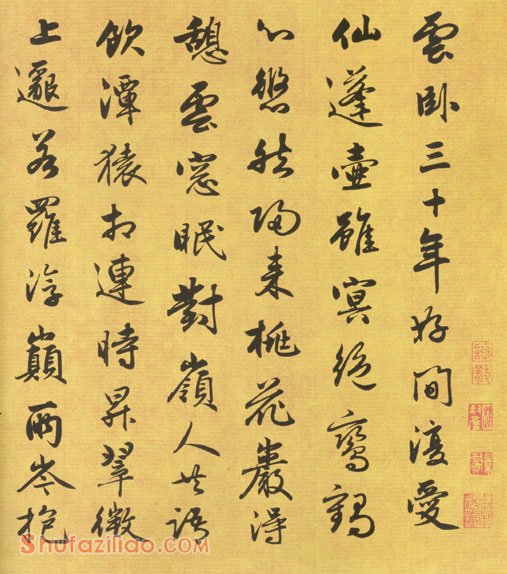 雲臥三十年好閒復愛
仙蓬壺雖冥絕鸞鶴
心悠然歸來桃花巖得
憩雲窓眠對嶺人共語
飲潭猿相連時昇翠微
上邈若羅浮巔兩岑抱
Shufaziliao.com